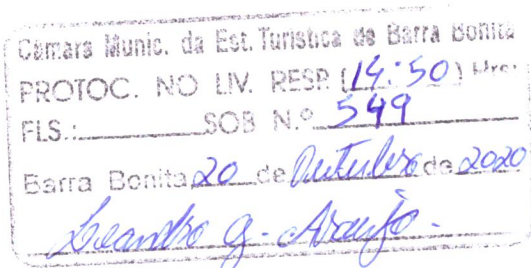 Câmara Munic. da Est. Turística de Barra Bonita
PROTOC. NO LIV. RESP. (14:50) Hrs:
FLS.: SOB N.º 549
Barra Bonita 20 de Outubro de 2020
Leandro G. Araujo.